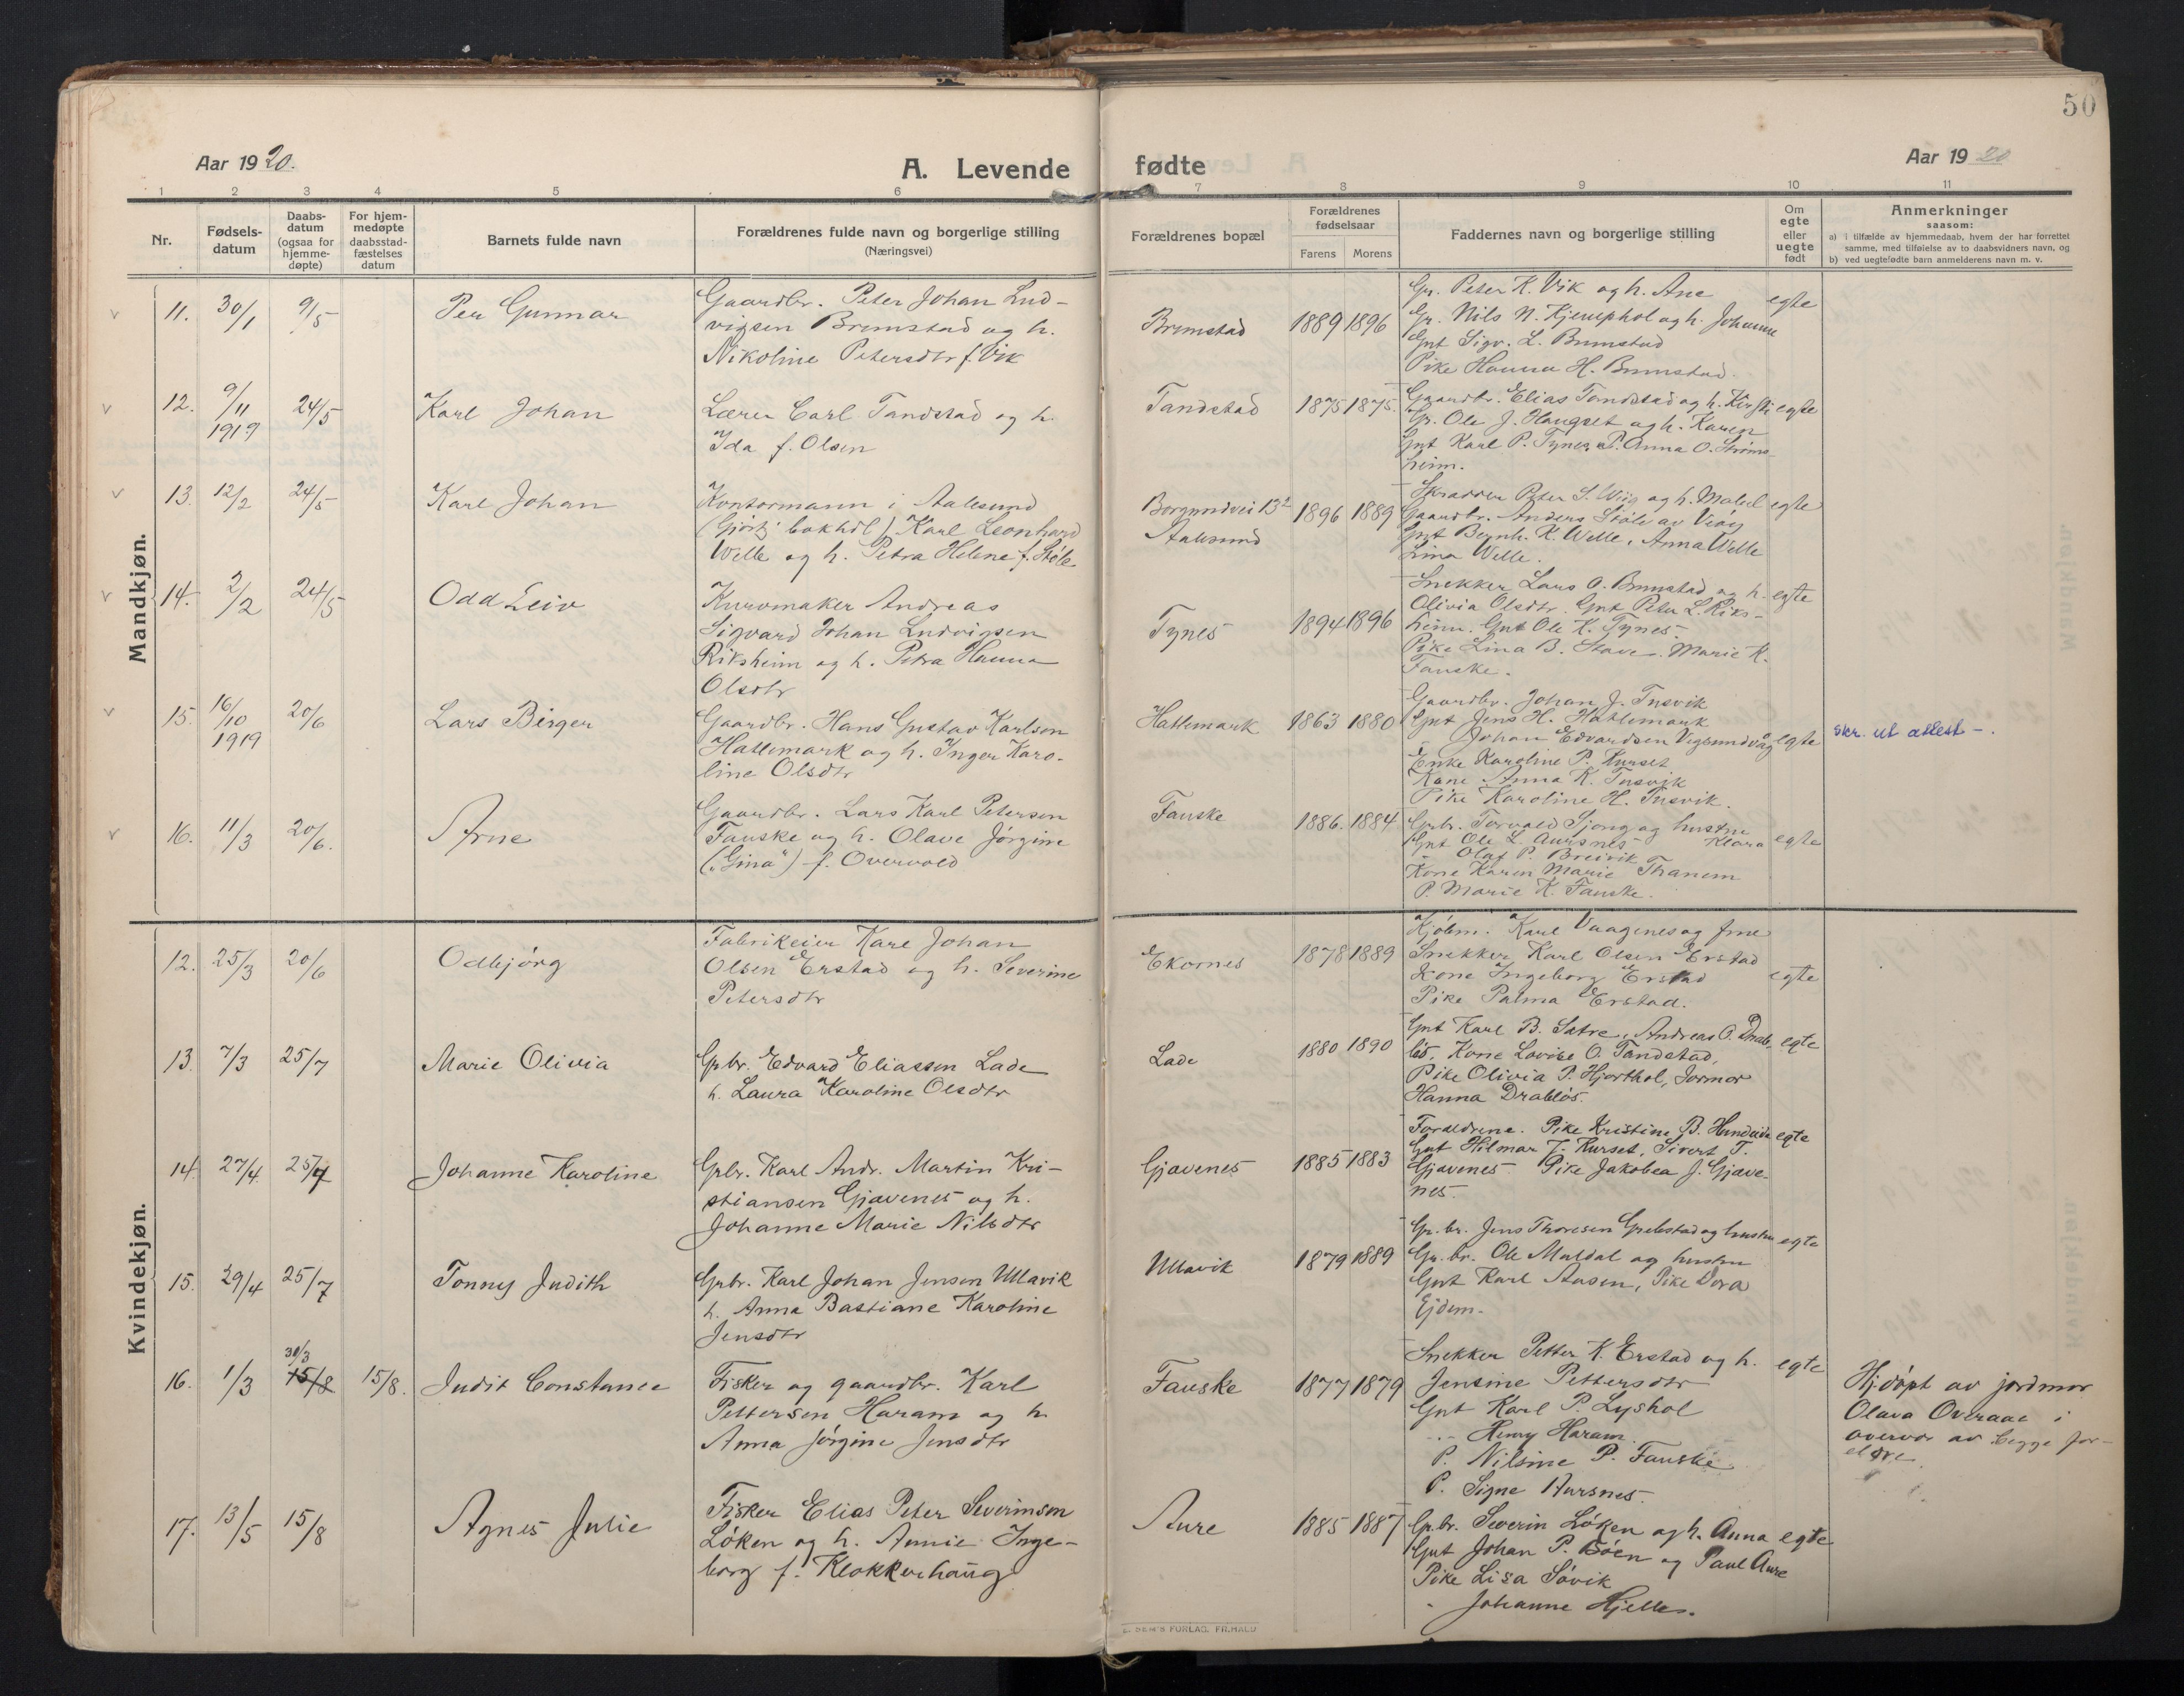 50
Aar 1920.
A. Levende fødte
Aar 1920
1 2 3 4 5 6 7 8 9 10 11
Nr.
Fødsels-
datum
Daabs-
datum
(ogsaa for
hjemme-
døpte)
For hjem-
medøpte
daabsstad-
fæstelses
datum
Barnets fulde navn
Forældrenes fulde navn og borgerlige stilling
(Næringsvei)
Forældrenes bopæl
Forældrenes
fødselsaar
Farens Morens
Faddernes navn og borgerlige stilling
Om
egte
eller
uegte
født
Anmerkninger
saasom:
a) i tilfælde av hjemmedaab, hvem der har forrettet
samme, med tilføielse av to daabsvidners navn, og
b) ved uegtefødte barn anmelderens navn m. v.
Mandkjøn.
11. 30/1 9/5 Per Gunnar
Gaardbr. Peter Johan Lud-
vigsen Brunstad og h.
Nikoline Petersdtr f. Vik
Brunstad 1889 1896
Gr. Peter K. Vik og h. Ane
Gr. Nils N. Kjemphol og h. Johanne
Gut Sigv. L. Brunstad
Pike Hanna H. Brunstad.
egte
12. 9/11 1919 24/5 Karl Johan
Lærer Carl Tandstad og h.
Ida f. Olsen
Tandstad 1875 1875.
Gaardbr. Elias Tandstad og h. Kirsti egte
Gr. Ole J. Haugset og h. Karen
Gut Karl P. Tynes, P. Anna O. Strøms-
heim.
13. 12/2 24/5 Karl Johan
Kontormann i Aalesund
(Gjørtz' bokhdl) Karl Leonhard
Welle og h. Petra Helene f. Støle
Borgundvei 132
Aalesund
1896 1889
Skrædder Peter S. Wiig og h. Malul egte
Gaardbr. Anders Støle av Viøy
Gut Bernh. K. Welle, Anna Welle
Lina Welle.
14. 2/2 24/5 Odd Leiv
Kurvmaker Andreas
Sigvard Johan Ludvigsen
Riksheim og h. Petra Hanna
Olsdtr
Tynes 1894 1896
Snekker Lars O. Brunstad og h. egte
Olivia Olsdtr. Gut Peter L. Riks-
heim. Gut Ole K. Tynes.
Pike Lina B. Stave. Marie K.
Fauske.
15. 16/10 1919 20/6 Lars Birger
Gaardbr. Hans Gustav Karlsen
Hatlemark og h. Inger Karo-
line Olsdtr
Hatlemark 1863 1880
Gaardbr. Johan J. Tusvik
Gut Jens H. Hatlemark
" Johan Edvardsen Vegsundvåg egte
Enke Karoline P. Kurset
Kone Anna K. Tusvik
Pike Karoline H. Tusvik.
skr. ut attest -.
16. 11/3 20/6. Arne
Gaardbr. Lars Karl Petersen
Fauske og h. Olave Jørgine
("Gina") f. Overvold
Fauske 1886. 1884
Grbr. Torvald Sjong og hustru
Klara egte
Gut Ole L. Aursnes
" Olaf P. Breivik
Kone Karen Marie Thanem
P. Marie K. Fauske.
Kvindekjøn.
12. 25/3 20/6 Odbjørg
Fabrikeier Karl Johan
Olsen Erstad og h. Severine
Petersdtr
Ekornes 1878 1889
Kjøbm. Karl Vaagenes og frue
Snekker Karl Olsen Erstad
Kone Ingeborg Erstad egte
Pike Palma Erstad.
13. 7/3 25/7 Marie Olivia
Gbr. Edvard Eliassen Lade
h. Laura Karoline Olsdtr
Lade 1880 1890
Gut Karl B. Satre, Andreas O. Drab- egte
løs. Kone Lovise O. Tandstad,
Pike Olivia P. Hjorthol, Jormor
Hanna Drabløs.
14. 27/4 25/7 Johanne Karoline
Grbr. Karl Andr. Martin Kri-
stiansen Gjævenes og h.
Johanne Marie Nilsdtr
Gjævenes 1885 1883
Forældrene. Pike Kristine B. Hundeide egte
Gut Hilmar J. Kurset, Sivert T.
Gjævenes Pike Jakobea J. Gjæve-
nes.
15. 29/4 25/7 Tonny Judith
Grbr. Karl Johan Jensen Ullavik
h. Anna Bastiane Karoline
Jensdtr
Ullavik 1879 1889
Gr. br. Jens Thoresen Grebstad og hustru egte
Gr. br. Ole Muldal og hustru
Gut Karl Aasen, Pike Dora
Ejdem.
16. 1/3 30/3 15/8 15/8. Judit Constance
Fisker og gaardbr. Karl
Pettersen Haram og h
Anna Jørgine Jensdtr
Fauske 1877 1879
Snekker Petter K. Erstad og h. egte
Jensine Pettersdtr
Gut Karl P. Lyshol
" Henry Haram.
P. Nilsine P. Fauske
P. Signe Aursnes.
Hj.døpt av jordmor
Olava Overaae i
overvær av begge for-
eldre.
17. 13/5 15/8 Agnes Julie
Fisker Elias Peter Severinson
Løken og h. Annie Inge-
borg f. Klokkerhaug
Aure 1885 1887
Grbr. Severin Løken og h. Anna egte
Gut Johan P. Bøen og Paul Aure
Pike Lisa Søvik
" Johanne Hjelle.
SEM'S FORLAG. FR.HALD